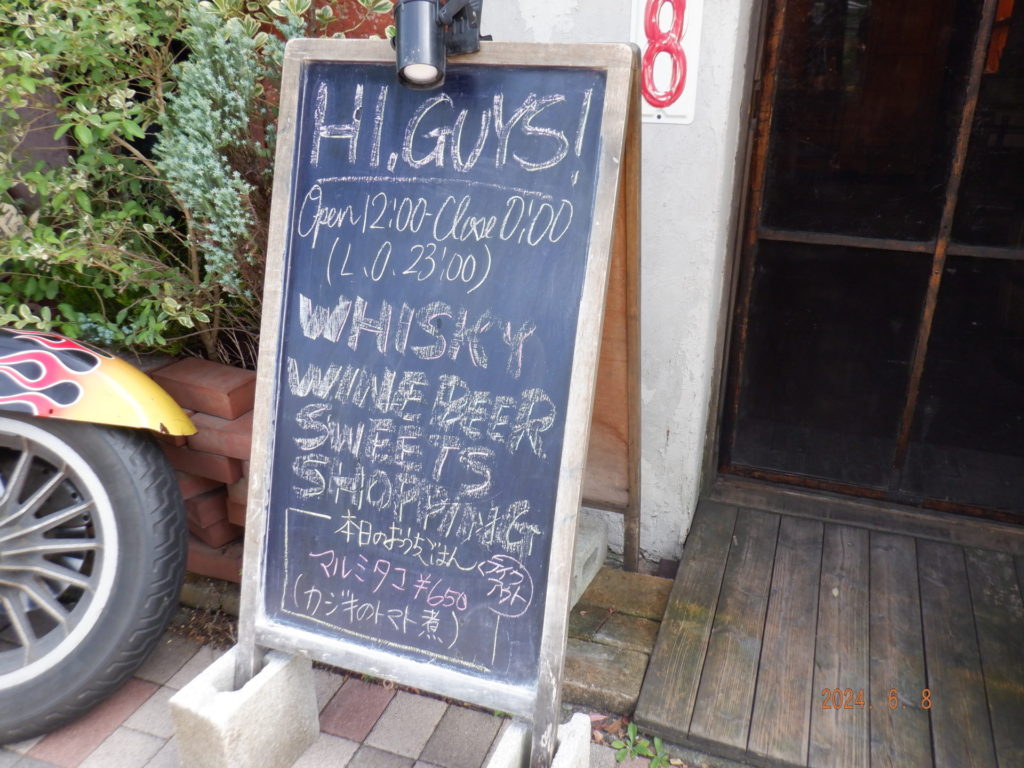 HI, GUYS!
Open 12:00-Close 0:00
(L.O. 23:00)
WHISKY
WINE BEER
SWEETS
SHOPPING
本日のおうちごはん
テイクアウト
マルミタコ ¥650
(カジキのトマト煮)
8
2024. 6. 8